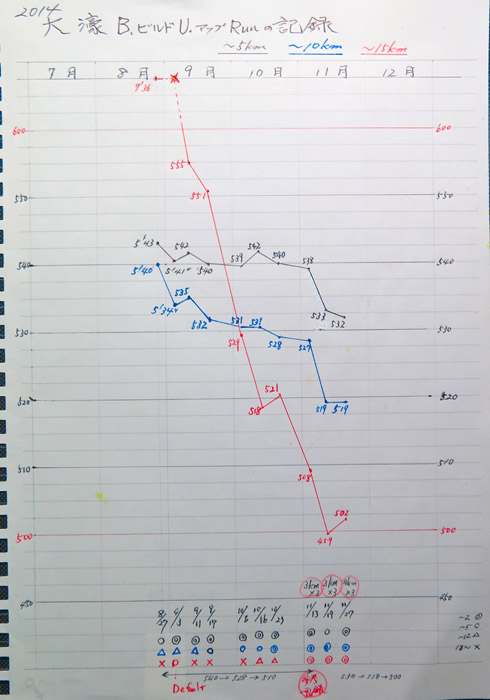 2014
大濠 B.ビルド U.アップ Runの記録
~5km ~10km ~15km
7月 8月 9月 10月 11月 12月
7'36
600 600
555
551
550 550
5'43 542 542
540 5'41" 540 539 540 538 540
5'40
535 533
5'34" 532 531 531 532
530 529 528 527 530
521
520 518 519 519 520
510 508 510
502
500 459 500
450 450
3km×3 3km×3 4km×3
8/27 9/3 9/11 9/17 10/8 10/16 10/23 11/13 11/19 11/27
Default
540→528→510 530→518→500